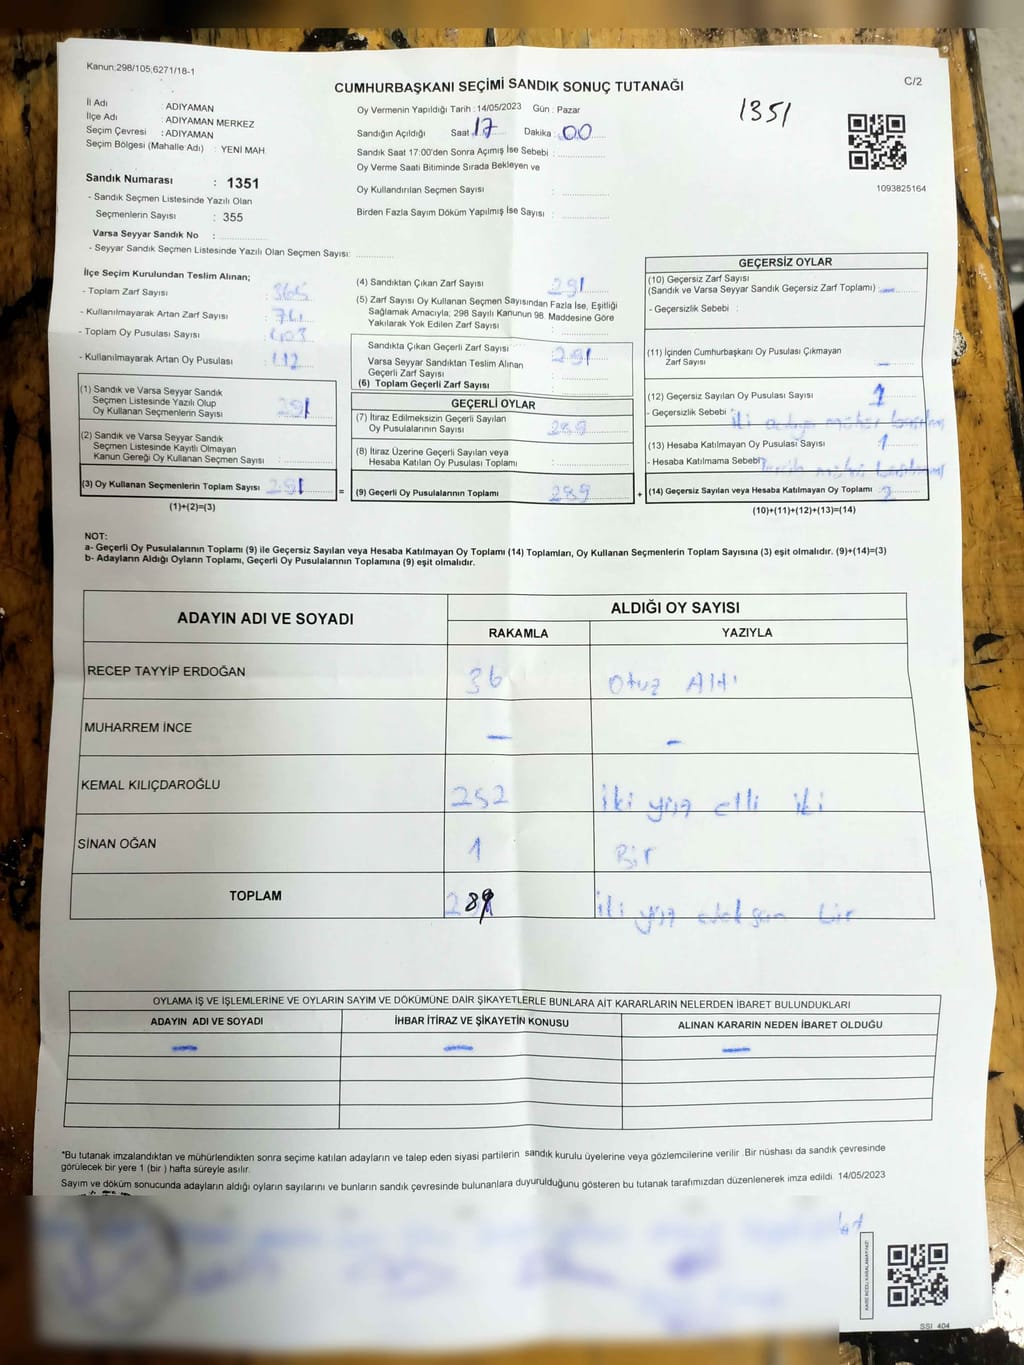 Kanun:298/105;6271/18-1
C/2
CUMHURBAŞKANI SEÇİMİ SANDIK SONUÇ TUTANAĞI
1351
İl Adı : ADIYAMAN
İlçe Adı : ADIYAMAN MERKEZ
Seçim Çevresi : ADIYAMAN
Seçim Bölgesi (Mahalle Adı) : YENİ MAH.
Sandık Numarası : 1351
- Sandık Seçmen Listesinde Yazılı Olan
Seçmenlerin Sayısı : 355
Varsa Seyyar Sandık No :
- Seyyar Sandık Seçmen Listesinde Yazılı Olan Seçmen Sayısı:
Oy Vermenin Yapıldığı Tarih : 14/05/2023 Gün : Pazar
Sandığın Açıldığı Saat 17 Dakika : 00
Sandık Saat 17:00'den Sonra Açımış İse Sebebi :
Oy Verme Saati Bitiminde Sırada Bekleyen ve
Oy Kullandırılan Seçmen Sayısı :
Birden Fazla Sayım Döküm Yapılmış İse Sayısı :
1093825164
İlçe Seçim Kurulundan Teslim Alınan;
- Toplam Zarf Sayısı :
- Kullanılmayarak Artan Zarf Sayısı :
- Toplam Oy Pusulası Sayısı : 403
- Kullanılmayarak Artan Oy Pusulası : 112
(1) Sandık ve Varsa Seyyar Sandık
Seçmen Listesinde Yazılı Olup
Oy Kullanan Seçmenlerin Sayısı : 291
(2) Sandık ve Varsa Seyyar Sandık
Seçmen Listesinde Kayıtlı Olmayan
Kanun Gereği Oy Kullanan Seçmen Sayısı :
(3) Oy Kullanan Seçmenlerin Toplam Sayısı : 291
(1)+(2)=(3)
=
(4) Sandıktan Çıkan Zarf Sayısı : 291
(5) Zarf Sayısı Oy Kullanan Seçmen Sayısından Fazla İse, Eşitliği
Sağlamak Amacıyla; 298 Sayılı Kanunun 98. Maddesine Göre
Yakılarak Yok Edilen Zarf Sayısı :
Sandıkta Çıkan Geçerli Zarf Sayısı : 291
Varsa Seyyar Sandıktan Teslim Alınan
Geçerli Zarf Sayısı :
(6) Toplam Geçerli Zarf Sayısı :
GEÇERLİ OYLAR
(7) İtiraz Edilmeksizin Geçerli Sayılan
Oy Pusulalarının Sayısı : 289
(8) İtiraz Üzerine Geçerli Sayılan veya
Hesaba Katılan Oy Pusulası Toplamı :
(9) Geçerli Oy Pusulalarının Toplamı : 289
+
GEÇERSİZ OYLAR
(10) Geçersiz Zarf Sayısı
(Sandık ve Varsa Seyyar Sandık Geçersiz Zarf Toplamı) : —
- Geçersizlik Sebebi :
(11) İçinden Cumhurbaşkanı Oy Pusulası Çıkmayan
Zarf Sayısı : —
(12) Geçersiz Sayılan Oy Pusulası Sayısı : 1
- Geçersizlik Sebebi :
(13) Hesaba Katılmayan Oy Pusulası Sayısı : 1
- Hesaba Katılmama Sebebi
(14) Geçersiz Sayılan veya Hesaba Katılmayan Oy Toplamı : 2
(10)+(11)+(12)+(13)=(14)
NOT:
a- Geçerli Oy Pusulalarının Toplamı (9) ile Geçersiz Sayılan veya Hesaba Katılmayan Oy Toplamı (14) Toplamları, Oy Kullanan Seçmenlerin Toplam Sayısına (3) eşit olmalıdır. (9)+(14)=(3)
b- Adayların Aldığı Oyların Toplamı, Geçerli Oy Pusulalarının Toplamına (9) eşit olmalıdır.
ADAYIN ADI VE SOYADI ALDIĞI OY SAYISI
RAKAMLA YAZIYLA
RECEP TAYYİP ERDOĞAN 36 Otuz Altı
MUHARREM İNCE — —
KEMAL KILIÇDAROĞLU 252 İki yüz elli iki
SİNAN OĞAN 1 Bir
TOPLAM 289 yüz bir
OYLAMA İŞ VE İŞLEMLERİNE VE OYLARIN SAYIM VE DÖKÜMÜNE DAİR ŞİKAYETLERLE BUNLARA AİT KARARLARIN NELERDEN İBARET BULUNDUKLARI
ADAYIN ADI VE SOYADI İHBAR İTİRAZ VE ŞİKAYETİN KONUSU ALINAN KARARIN NEDEN İBARET OLDUĞU
— — —
*Bu tutanak imzalandıktan ve mühürlendikten sonra seçime katılan adayların ve talep eden siyasi partilerin sandık kurulu üyelerine veya gözlemcilerine verilir .Bir nüshası da sandık çevresinde
görülecek bir yere 1 (bir ) hafta süreyle asılır.
Sayım ve döküm sonucunda adayların aldığı oyların sayılarını ve bunların sandık çevresinde bulunanlara duyurulduğunu gösteren bu tutanak tarafımızdan düzenlenerek imza edildi. 14/05/2023
SSI 404